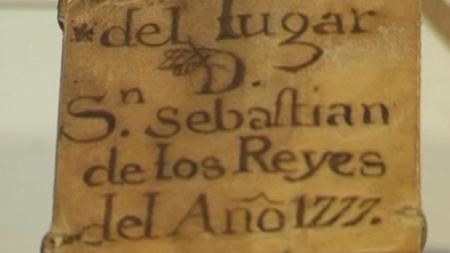 del lugar
D.
Sn. sebaſtian
de los Reyes
del Año 1777.